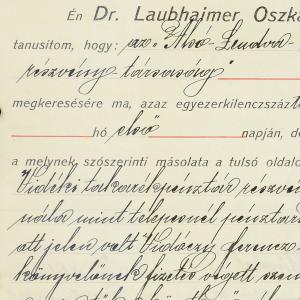 Én Dr. Laubhaimer Oszká
tanusítom, hogy: az "Alsó Lendva-
részvény társaság"
megkeresésére ma, azaz egyezerkilencszáz t
hó első napján, de
a melynek szószerinti másolata a tulsó oldalo
Vidéki takarékpénztár részvén
nála mint telepesnél pénztárá
ott jelen volt Vidóczy Ferencz
könyvelőnek fizetés végett szem